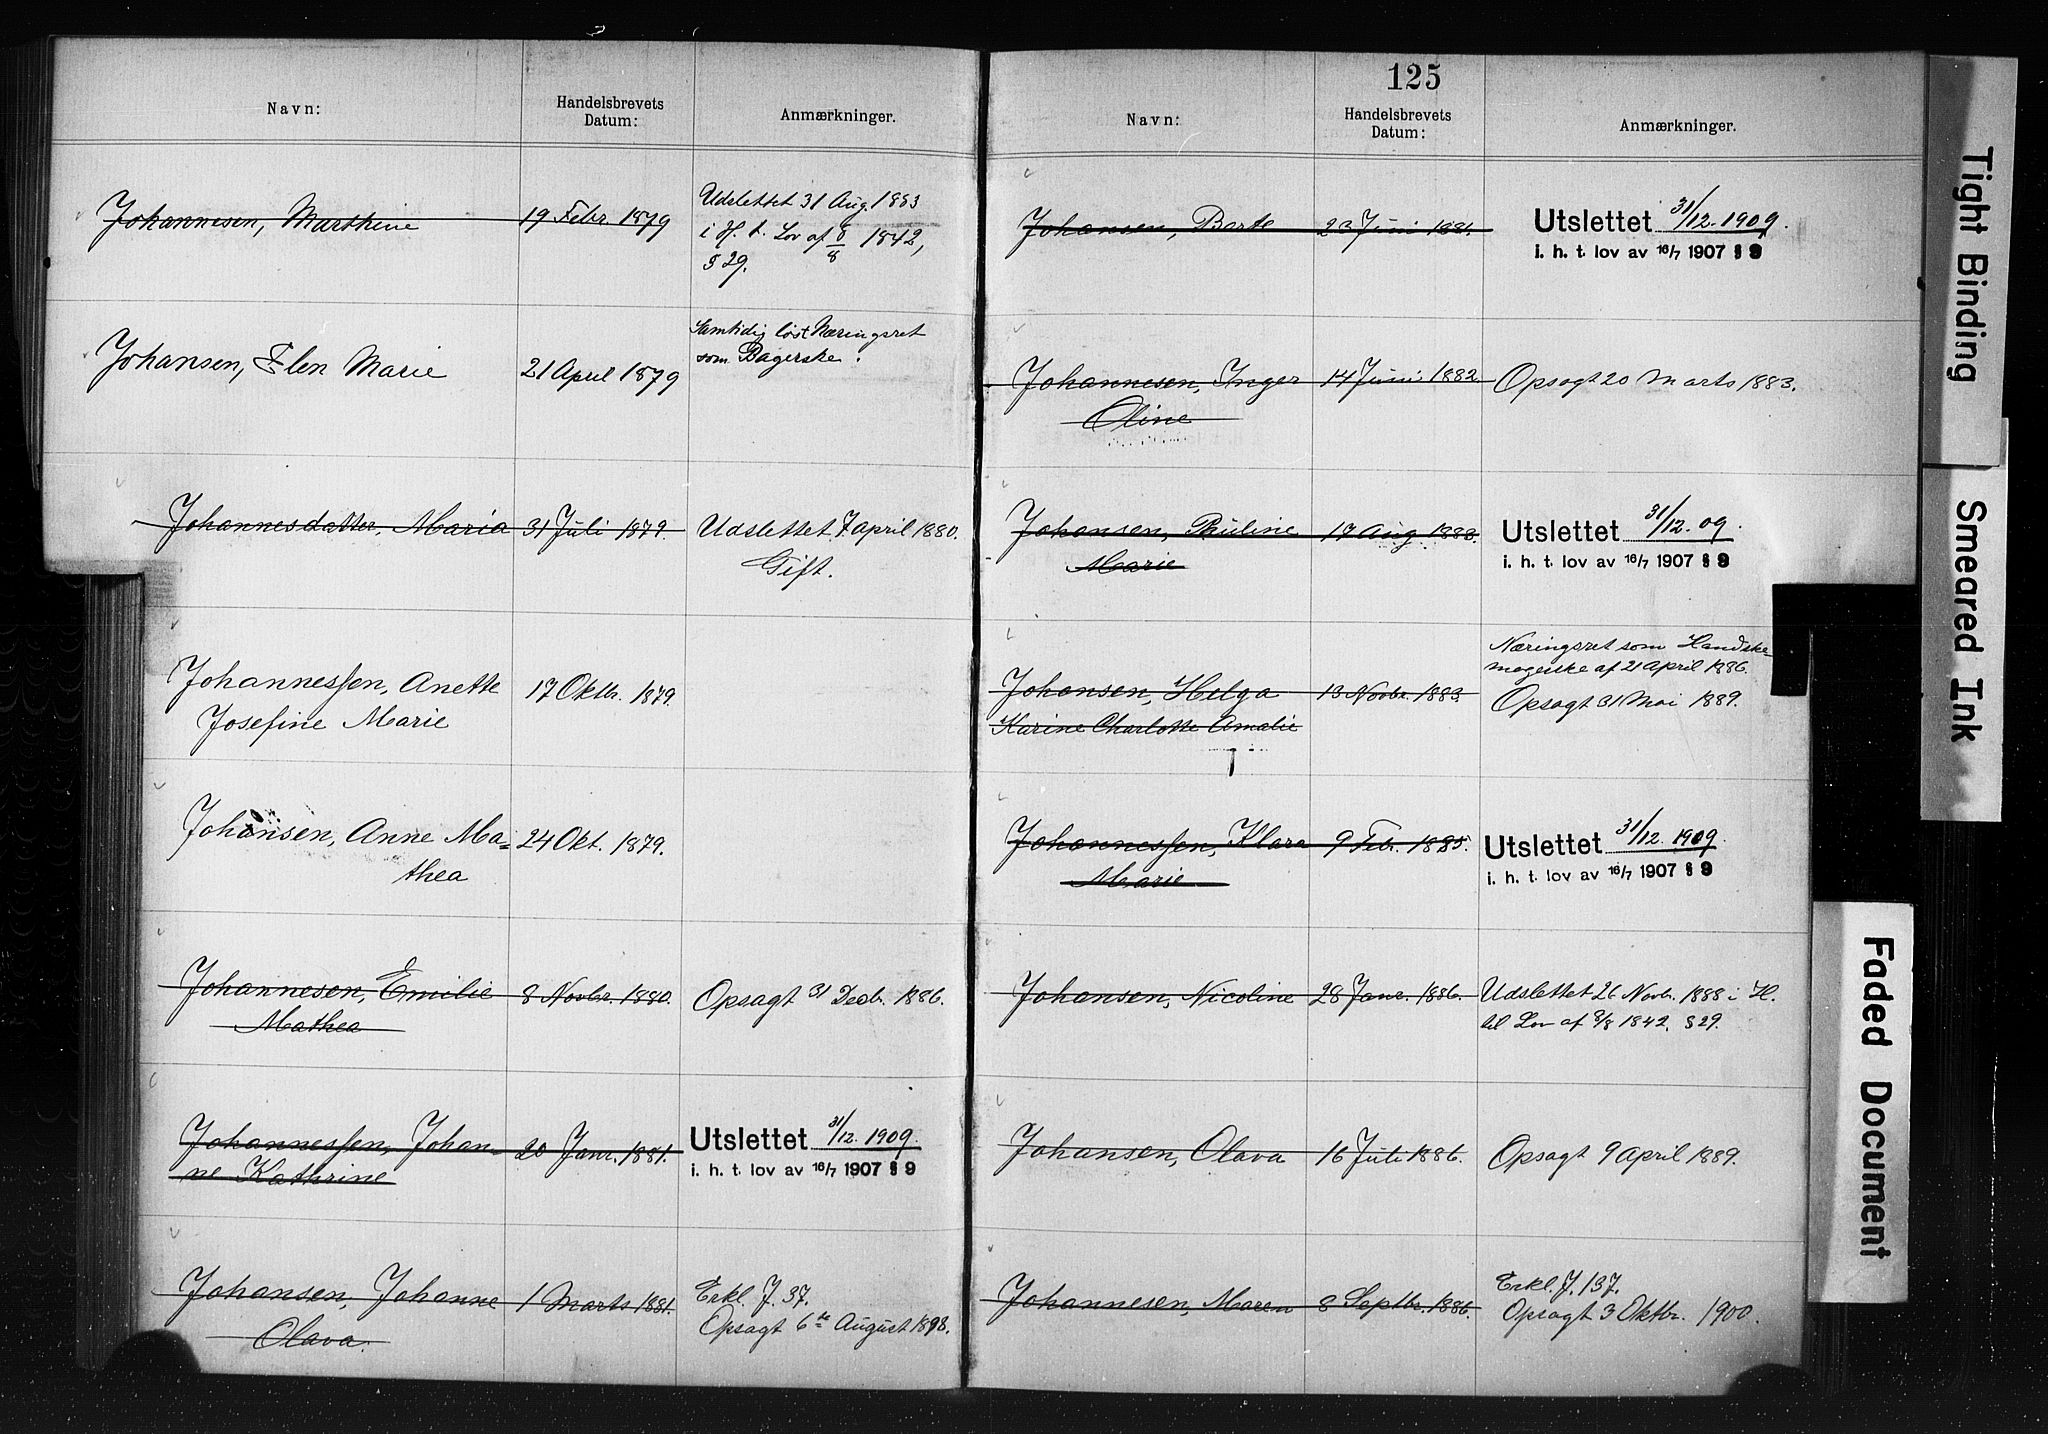 Navn:
Handelsbrevets
Datum:
Anmærkninger.
Johannesen, Marthine
19 Febr. 1879
Udslettet 31 Aug. 1883
i H. t. Lov af 8/8 1842,
§ 29.
Johansen, Elen Marie
21 April 1879
Samtidig løst Næringsret
som Bagerske.
Johannesdatter, Maria
31 Juli 1879.
Udslettet 7 april 1880.
Gift.
Johannessen, Anette
Josefine Marie
17 Oktbr. 1879.
Johansen, Anne Ma=
thea
24 Okt. 1879.
Johannesen, Emilie
Mathea
8 Novbr. 1880.
Opsagt 31 Decb. 1886.
Johannessen, Johan-
ne Kathrine
20 Janr. 1881.
Utslettet 31/12. 1909.
i. h. t. lov av 16/7 1907 § 9
Johansen, Johanne
Olava.
1 Marts 1881.
Erkl. J. 37.
Opsagt 6te August 1898.
125
Navn:
Handelsbrevets
Datum:
Anmærkninger.
Johansen, Berte
23 Juni 1881.
Utslettet 31/12. 1909.
i. h. t. lov av 16/7 1907 § 9
Johannesen, Inger
Oline
14 Juni 1882.
Opsagt 20 Marts 1883.
Johansen, Pauline
Marie
17 Aug. 1883.
Utslettet 31/12. 09.
i. h. t. lov av 16/7 1907 § 9
Johansen, Helga
Karine Charlotte Amalie
13 Novbr. 1883.
Næringsret som Handske-
magerske af 21 april 1886.
Opsagt 31 Mai 1889.
Johannessen, Klara
Marie
9 Febr. 1885.
Utslettet 31/12. 1909.
i. h. t. lov av 16/7 1907 § 9
Johansen, Nicoline
28 Janr. 1886.
Udslettet 26 Novbr. 1888 i H.
til Lov af 8/8 1842. § 29.
Johansen, Olava
16 Juli 1886.
Opsagt 9 april 1889.
Johannesen, Maren
8 Septbr. 1886.
Erkl. J. 137.
Opsagt 3 Oktbr. 1900.
Tight Binding
Smeared Ink
Faded Document